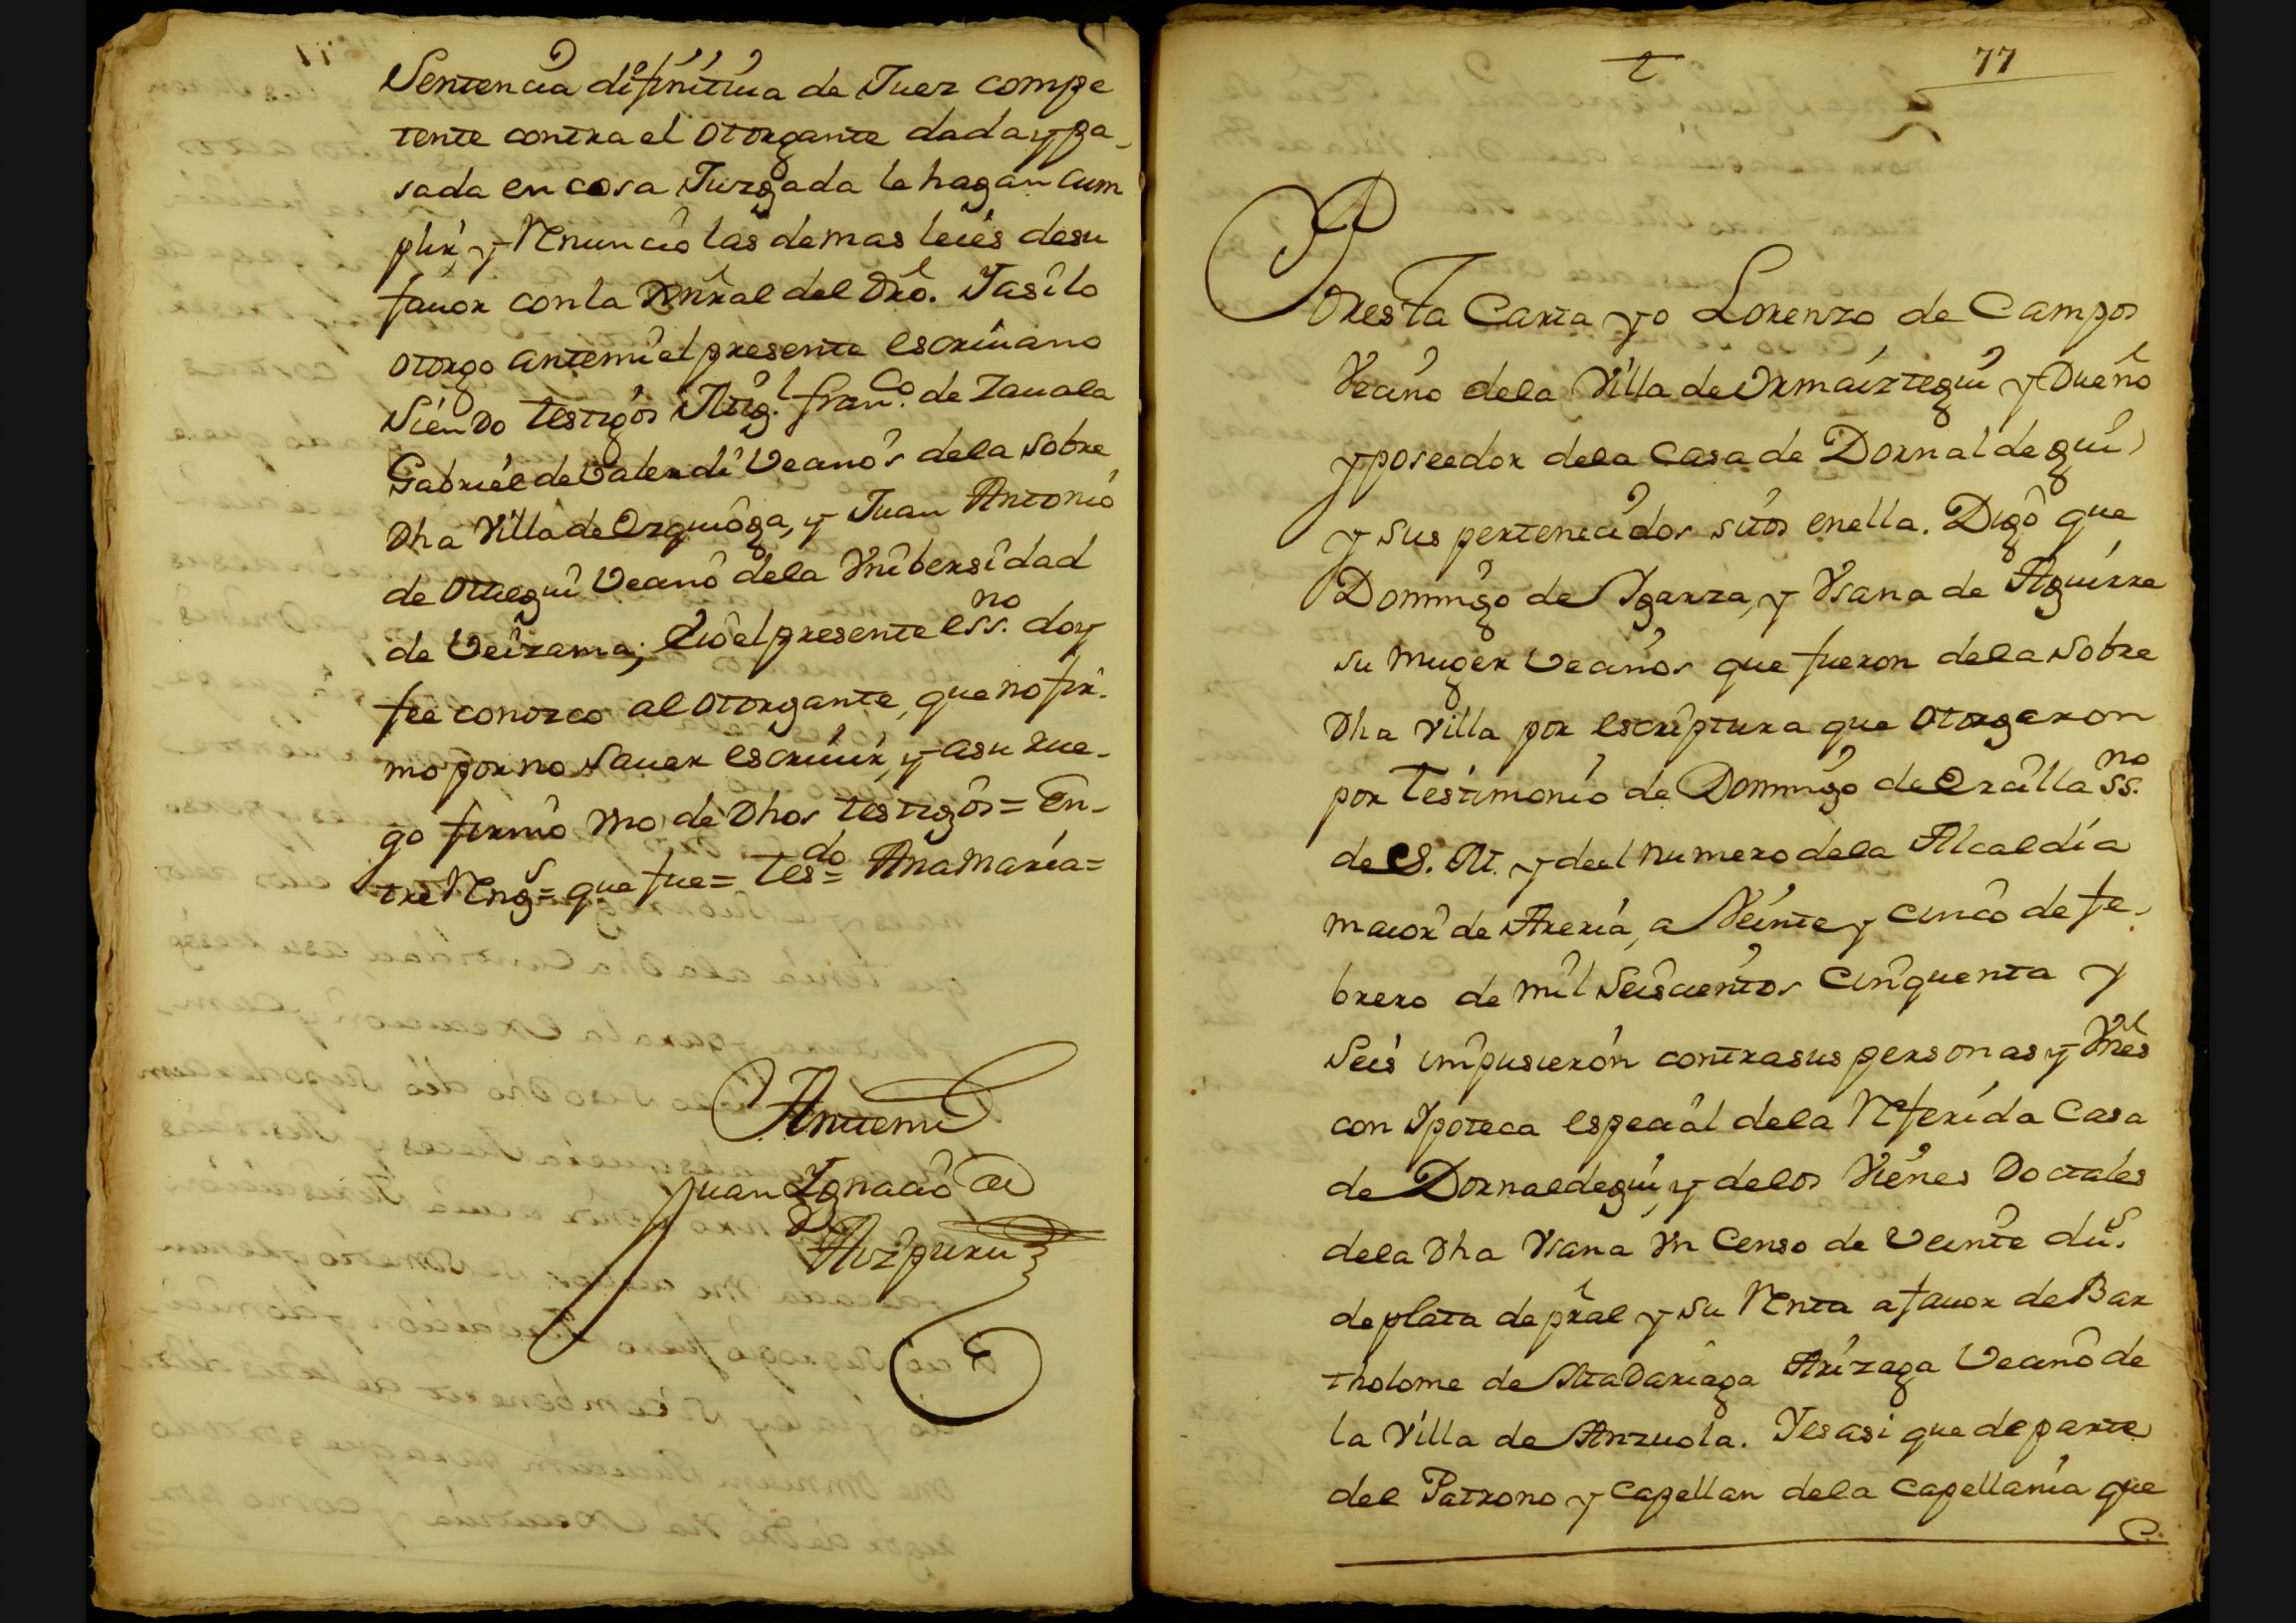 Sentencia difinitiua de Juez compe
tente contra el otorgante dada y pa-
sada en cosa Juzgada le hagan cum
plir, y Renuncio las demas leies desu
fauor con la Genral del Dro. Jasilo
otorgo antemi el presente escriuano
siendo testigos Mig.l fran.co de Zauala
Gabriel de Valerdi Vecinos dela sobre
Dha Villa de Ezquioga, y Juan Antonio
de Ottegui Vecino dela Vnibersidad
de Veizama; Eio el presente ess.no doy
fee conozco al otorgante, que no fir-
mo por no sauer escriuir, y asu rue-
go firmo vno de Dhos testigos = En-
tre Reng.s = que fue = tes.do = Ana Maria =
Antemi
Juan Ignacio de
Aizpuru
77
Por esta Carta yo Lorenzo de Campos
Vecino dela Villa de Ormaiztegui y Dueño
y poseedor dela Casa de Dornaldegui
y sus pertenecidos sitos en ella. Digo que
Domingo de Igarza, y Vsana de Aguirre
su muger Vecinos que fueron dela sobre
Dha Villa por escriptura que otorgaron
por testimonio de Domingo de Eralla ss.no
de S. M. y del numero dela Alcaldia
maior de Areria, a Veinte y cinco de fe-
brero de mil seiscientos cinquenta y
seis impusieron contra sus personas y Vnes
con Ypoteca especial dela Referida Casa
de Dornaldegui, y delos Vienes Dotales
dela Dha Vsana vn Censo de Veinte du.s
de plata de pral y su Renta afauor de Bar
tholome de Madariaga Arizaga Vecino de
la Villa de Anzuola. Yes asi que de parte
del Patrono y Capellan dela Capellania que